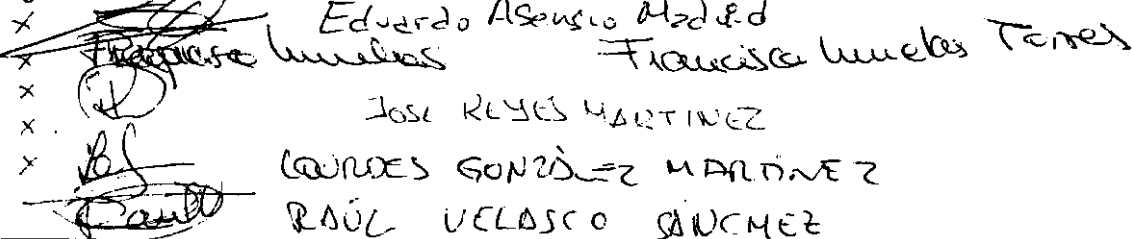 x Eduardo Asensio Madrid
x Francisca Torres
x JOSE REYES MARTINEZ
x
x LOURDES GONZÁLEZ MARTINEZ
RAÚL VELASCO SÁNCHEZ